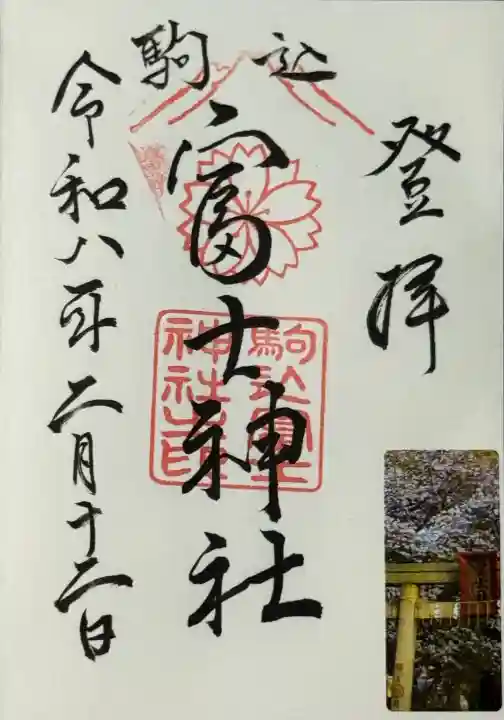 登拝
駒込
富士神社
令和八年二月十二日
駒込富士
神社之印